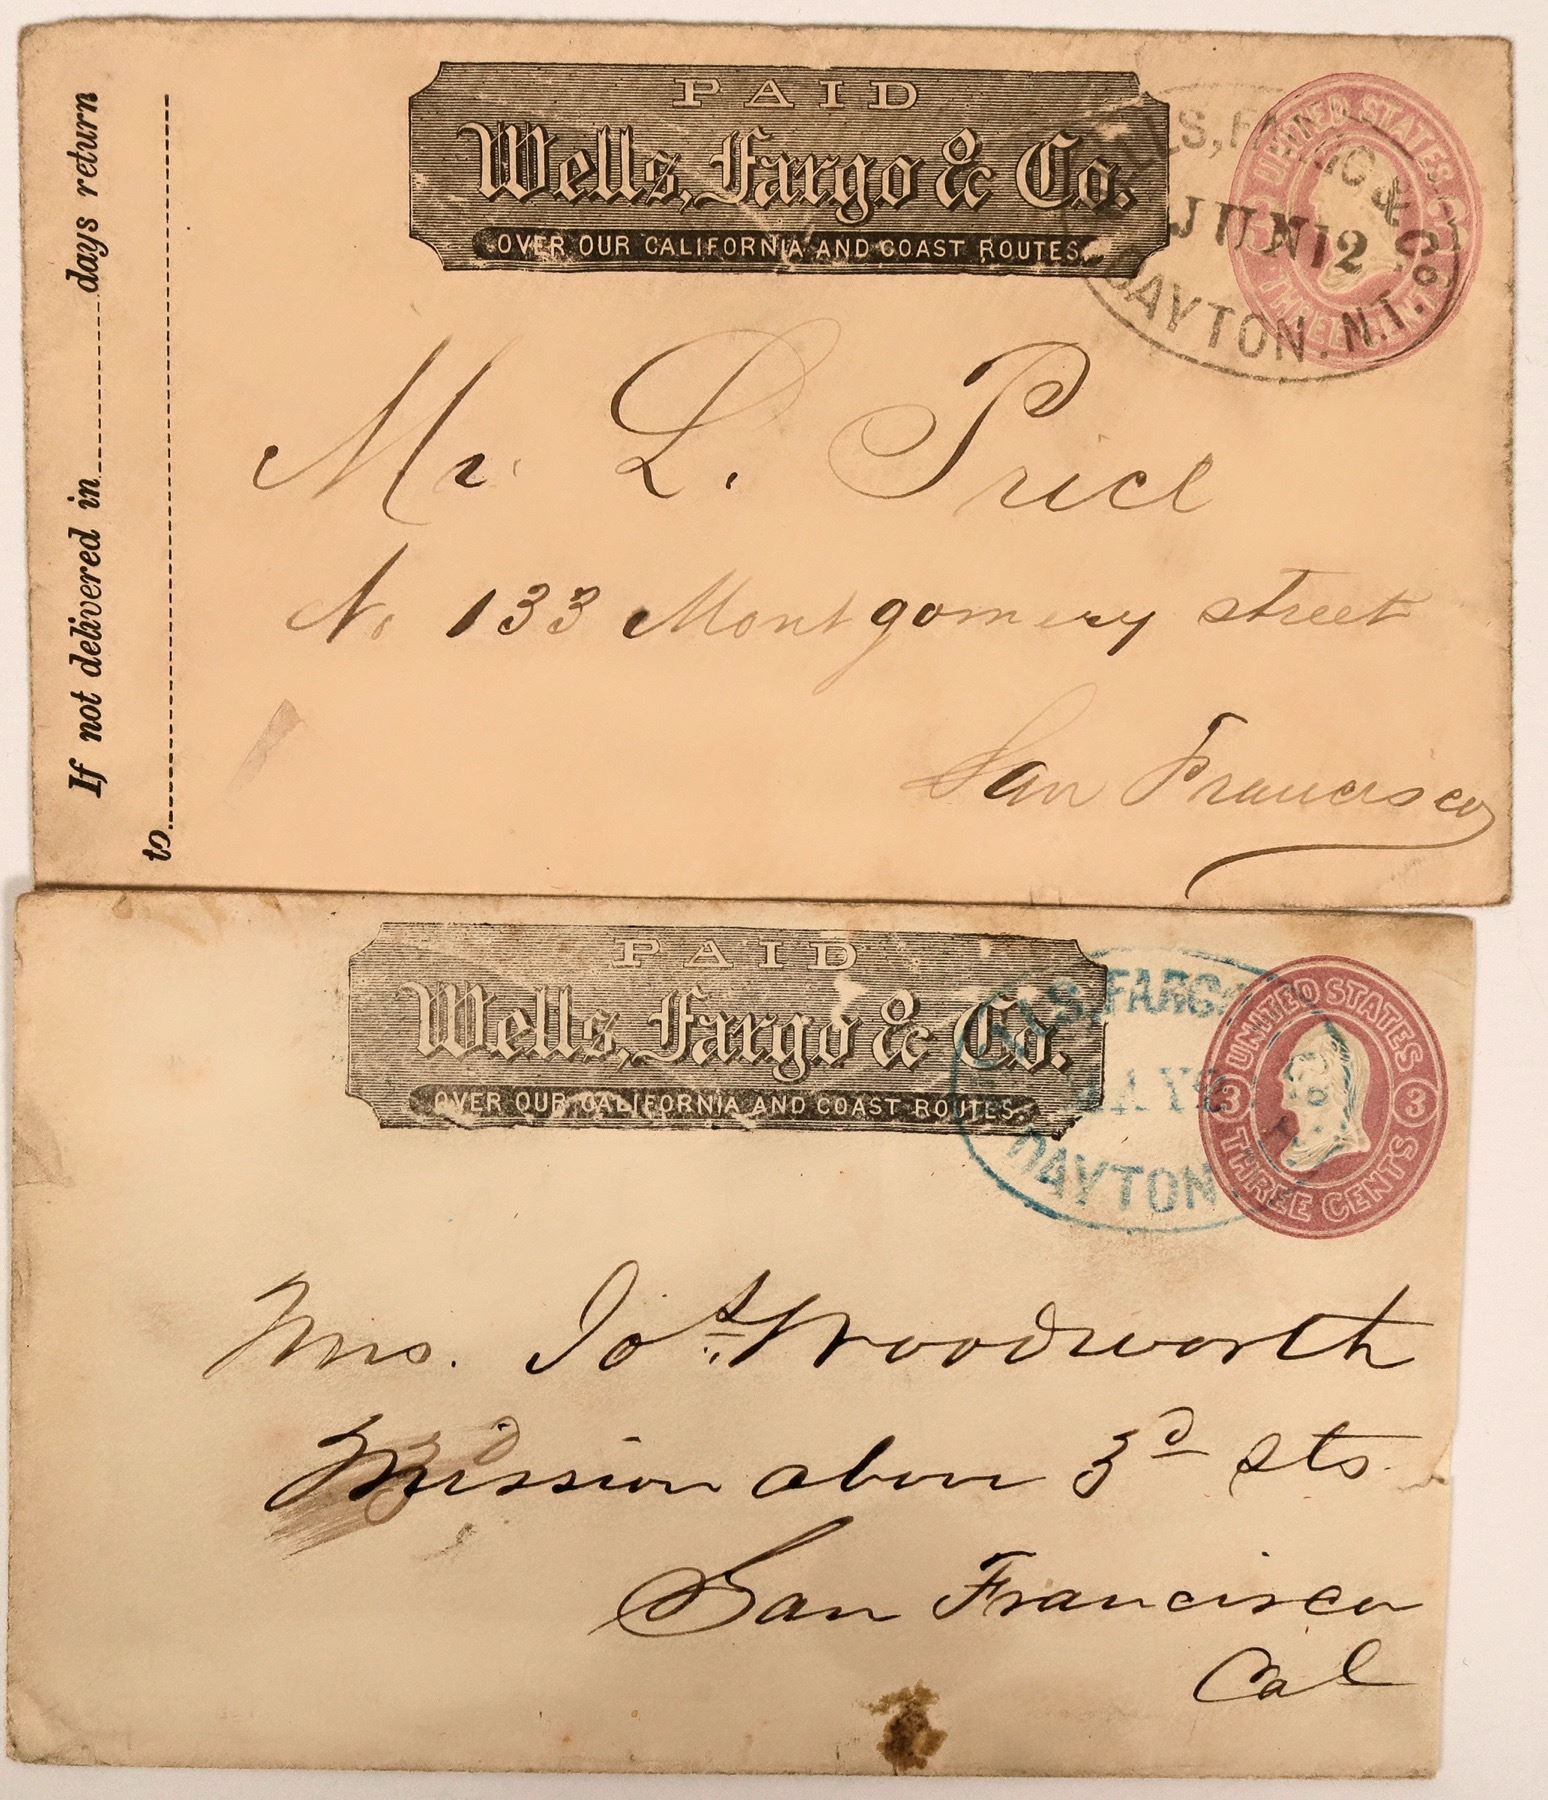 If not delivered in days return
to
PAID
Wells, Fargo & Co.
OVER OUR CALIFORNIA AND COAST ROUTES.
WELLS, FARGO & Co
JUN 12
DAYTON. N.T.
UNITED STATES
THREE CENTS
Mr. L. Price
No 133 Montgomery street
San Francisco
PAID
Wells, Fargo & Co.
OVER OUR CALIFORNIA AND COAST ROUTES.
WELLS, FARGO & Co
MAY
DAYTON
UNITED STATES
3 3
THREE CENTS
Mrs. Jos. Woodworth
Mission above 3d sts
San Francisco
Cal